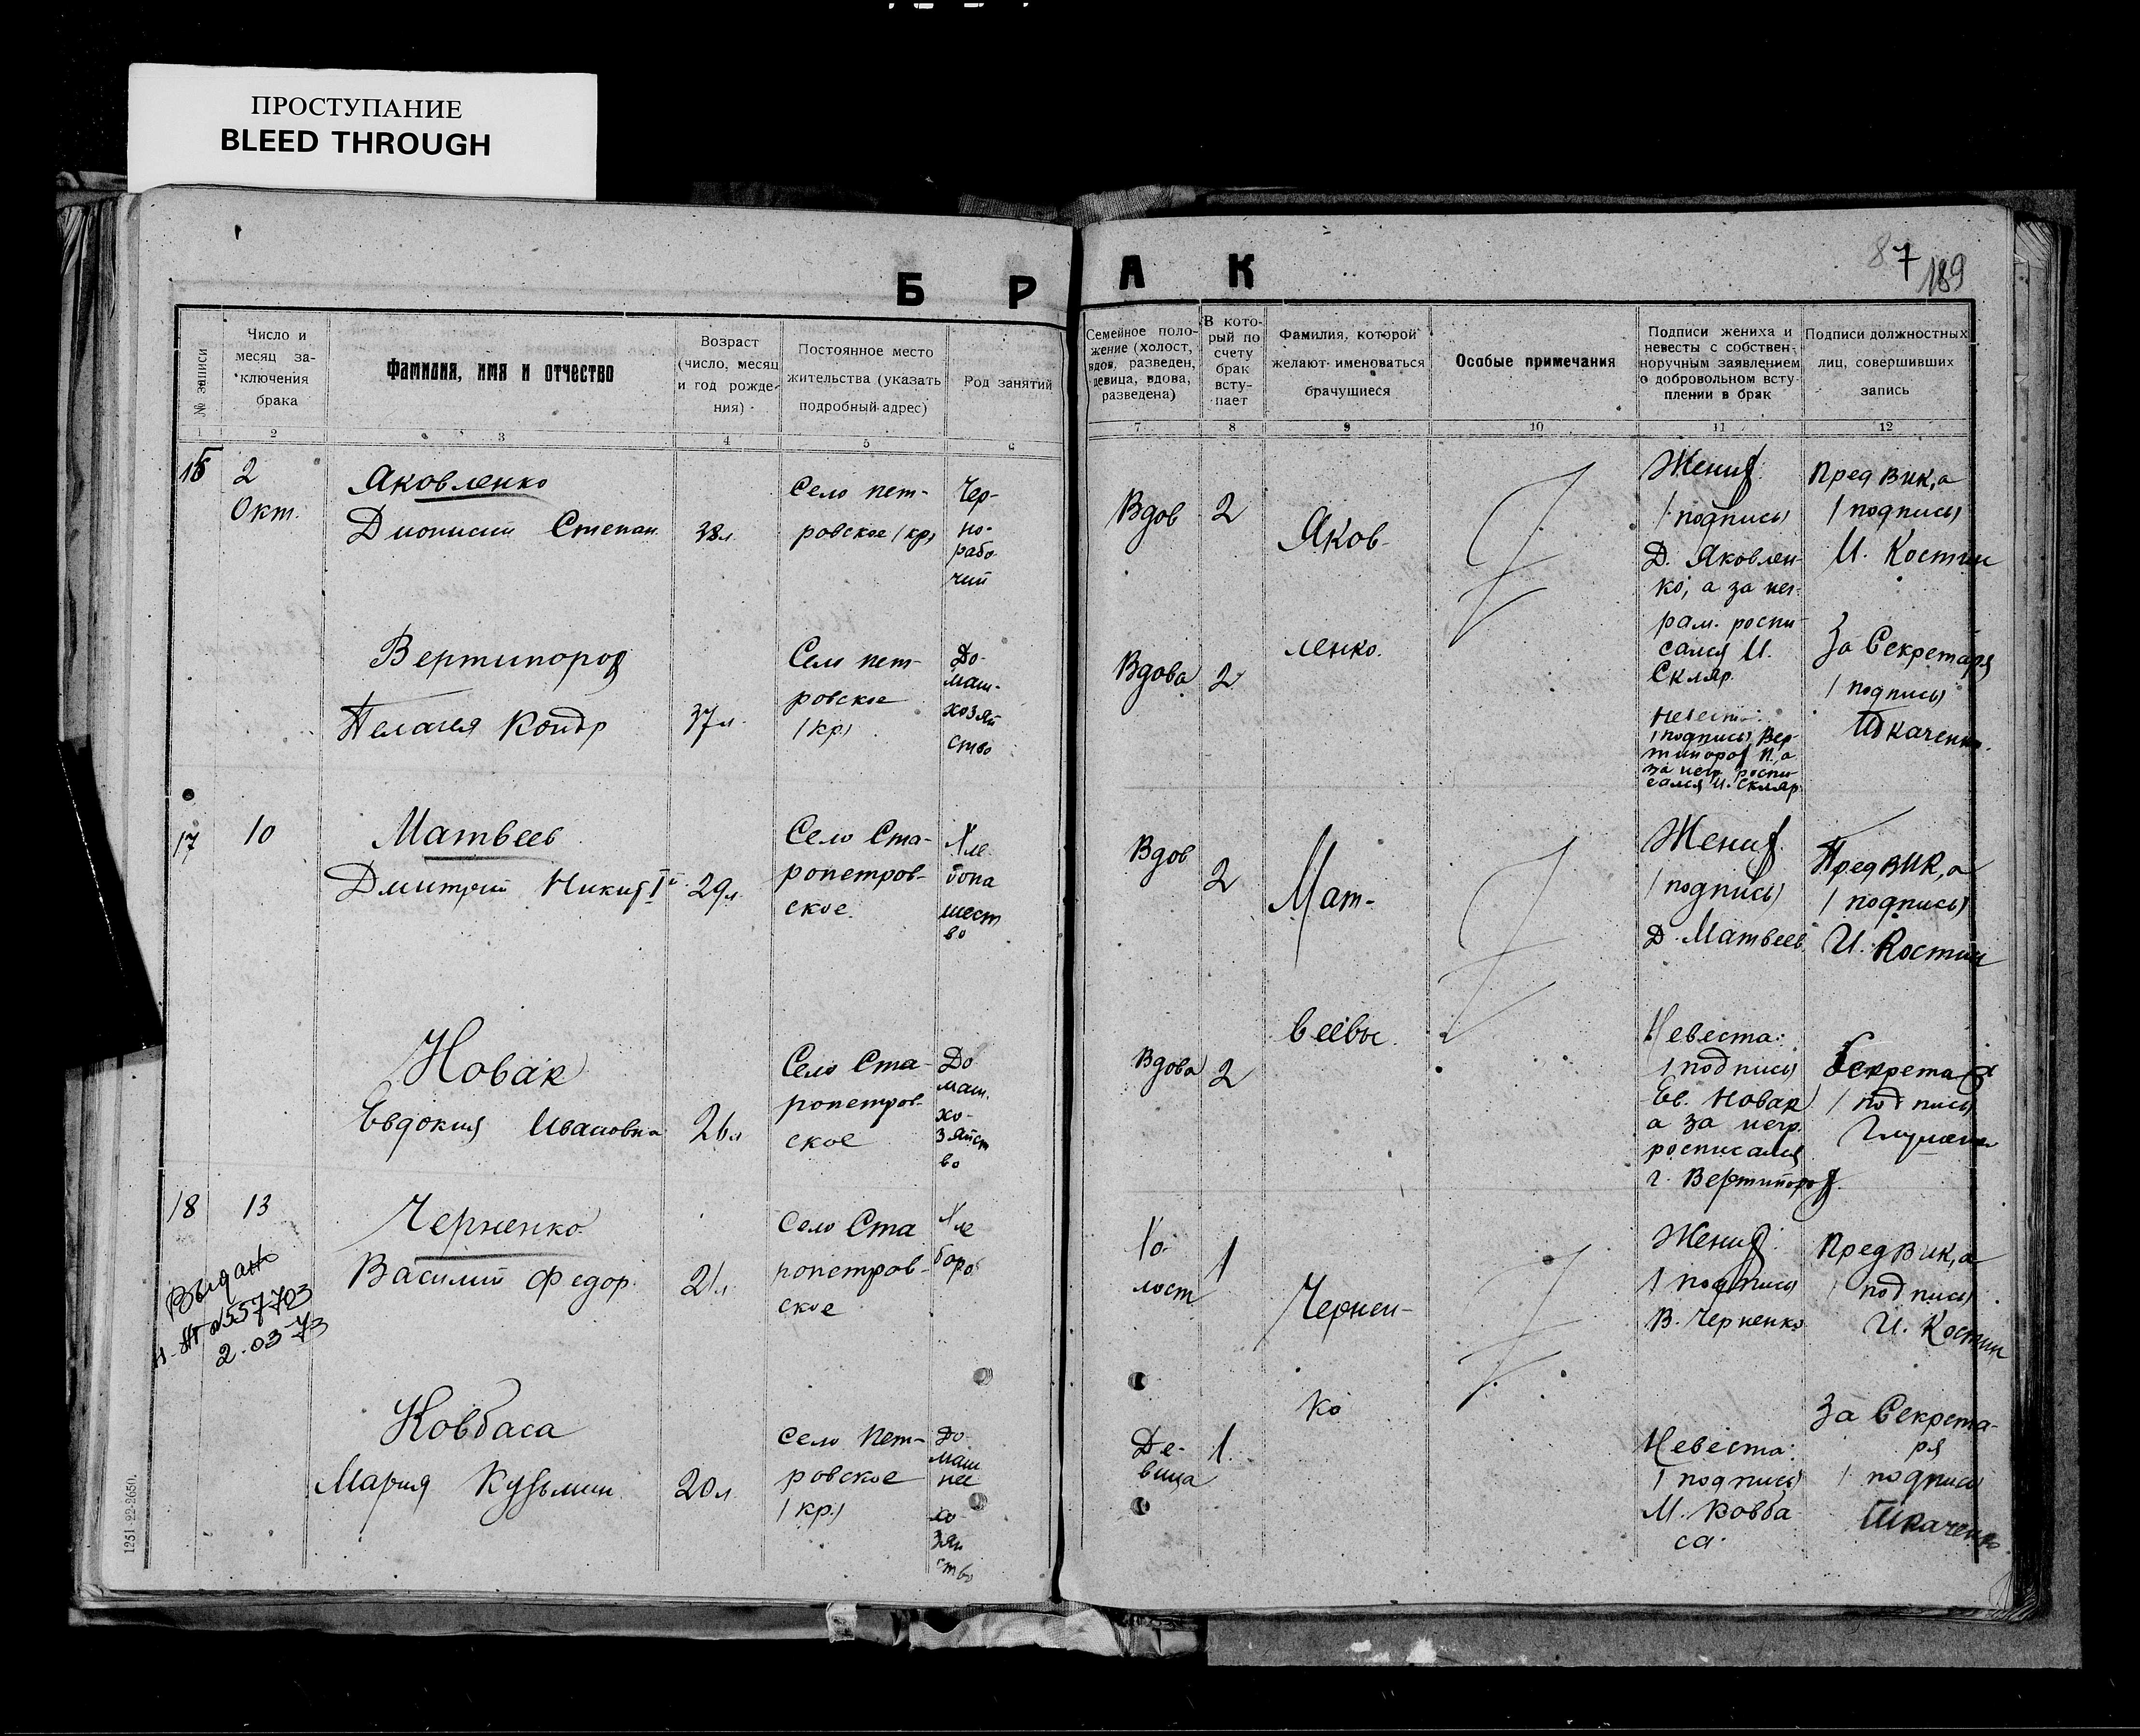 ПРОСТУПАНИЕ
BLEED THROUGH
Б Р А К
87
189
№ записи
Число и
месяц за-
ключения
брака
Фамилия, имя и отчество
Возраст
(число, месяц
и год рожде-
ния)
Постоянное место
жительства (указать
подробный адрес)
Род занятий
Семейное поло-
жение (холост,
вдов, разведен,
девица, вдова,
разведена)
В кото-
рый по
счету
брак
всту-
пает
Фамилия, которой
желают именоваться
брачущиеся
Особые примечания
Подписи жениха и
невесты с собствен-
норучным заявлением
о добровольном всту-
плении в брак
Подписи должностных
лиц, совершивших
запись
1 2 3 4 5 6 7 8 9 10 11 12
2
Окт.
Яковленко
Дионисий Степан.
38л.
Село пет-
ровское (кр)
Чер-
но-
рабо-
чий
Вдов
2
Яков-
Жених
(подпись)
Д. Яковлен-
ко, а за нег-
рам. роспи-
сался И.
Скляр.
Пред вик,а
(подпись)
И. Костин
Вертипорох
Пелагея Кондр
37л.
Село пет-
ровское
(кр)
До-
маш-
хозяй
ство
Вдова
2
ленко.
Невеста:
(подпись) Вер-
типорох П., а
за негр. роспи-
сался И. Скляр.
За Секретаря
(подпись)
Ткаченко.
17
10
Матвеев
Дмитрий Никит
29л.
Село Ста-
ропетров-
ское.
Хле
бопа
шест
во
Вдов
2
Мат-
Жених.
(подпись)
Д. Матвеев
Пред ВИК,а
(подпись)
И. Костин
Новак
Евдокия Ивановна
26л
Село Ста-
ропетров-
ское
До
маш.
хо-
зяйст
во
Вдова
2
веевы.
Невеста:
(подпись)
Ев. Новак
а за негр.
росписался
г. Вертипорох.
Секретарь
(подпись)
18
13
Черненко
Василий Федор.
21л
Село Ста
ропетров-
ское
Хле
бороб
Хо-
лост
1
Чернен-
Жених:
(подпись)
В. Черненко
Пред вик,а
(подпись)
И. Костин
Выдано
№557703
2.03.73
Ковбаса
Мария Кузьмин.
20л.
Село Пет-
ровское
(кр.)
До-
маш
нее
хо
зяй
ство
Де-
вица
1.
ко
Невеста:
(подпись)
М. Ковба
са.
За Секрета-
ря
(подпись)
Ткаченко
1251-22-2650.